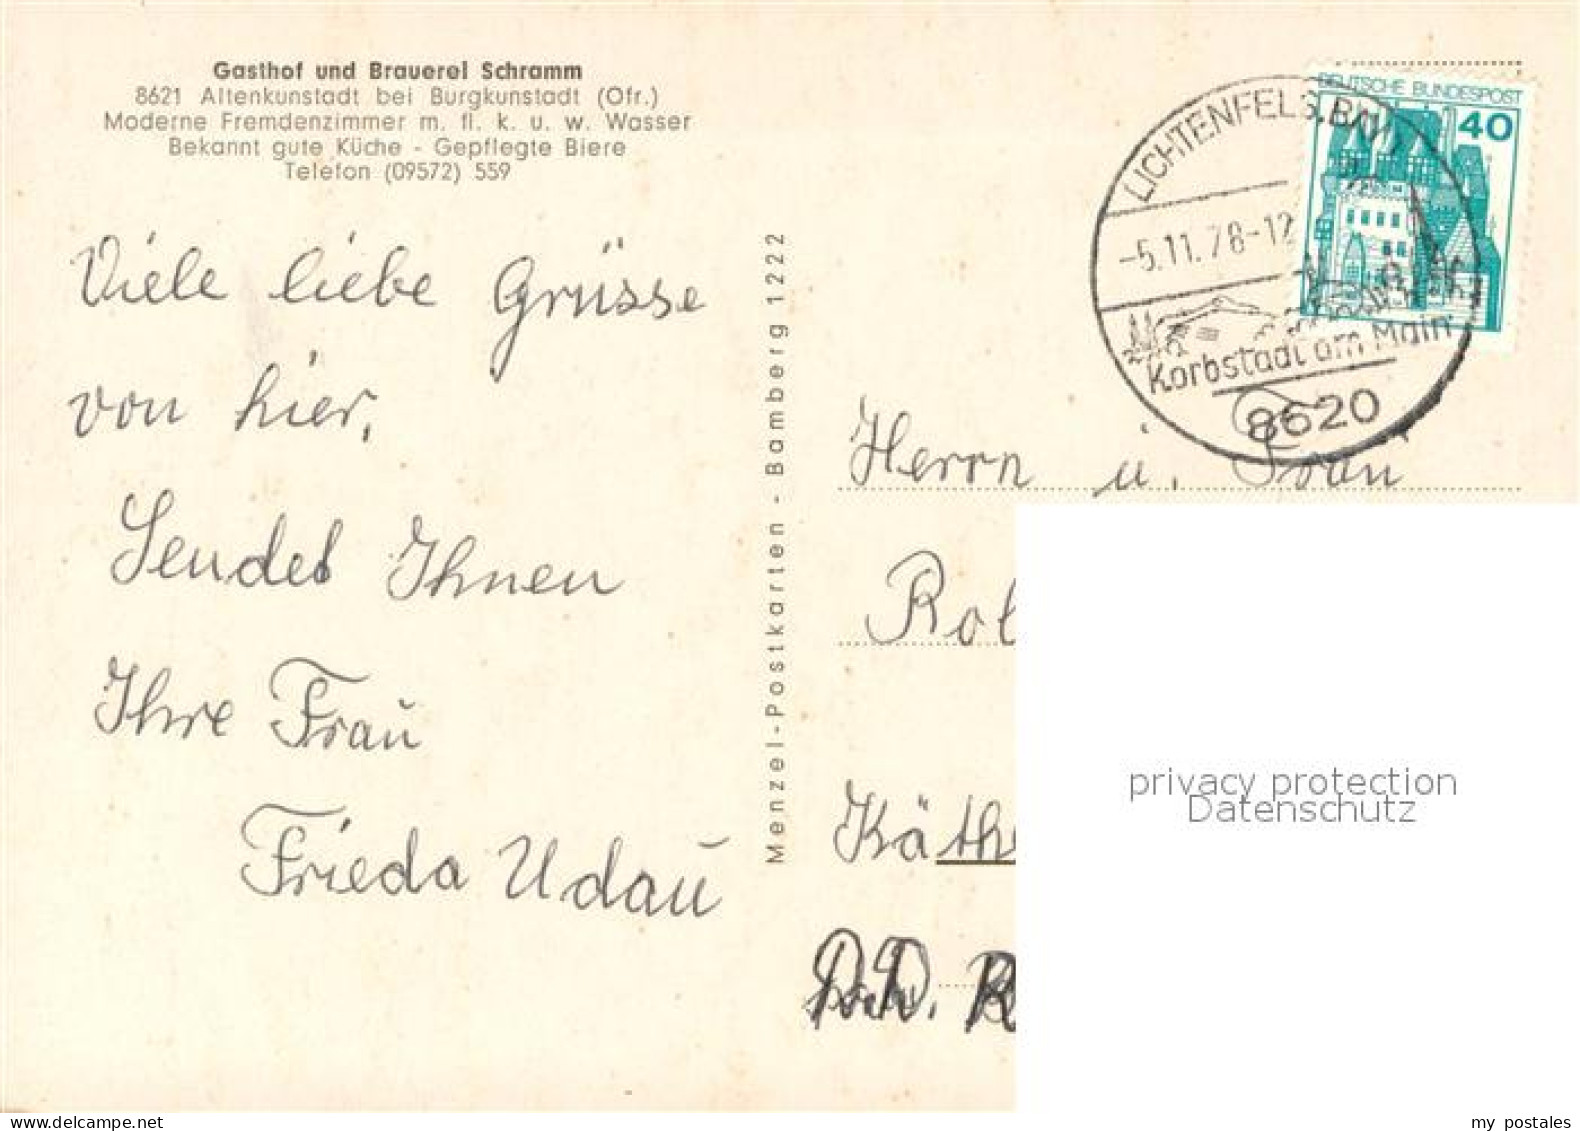 Gasthof und Brauerei Schramm
8621 Altenkunstadt bei Burgkunstadt (Ofr.)
Moderne Fremdenzimmer m. fl. k. u. w. Wasser
Bekannt gute Küche - Gepflegte Biere
Telefon (09572) 559
Viele liebe Grüsse
von hier,
Sendet Ihnen
Ihre Frau
Frieda Udau
Menzel-Postkarten - Bamberg 1222
DEUTSCHE BUNDESPOST
40
LICHTENFELS, BAY
-5.11.78-12
Korbstadt am Main
8620
Herrn u. Frau
Rol
Käth
privacy protection
Datenschutz
my postales